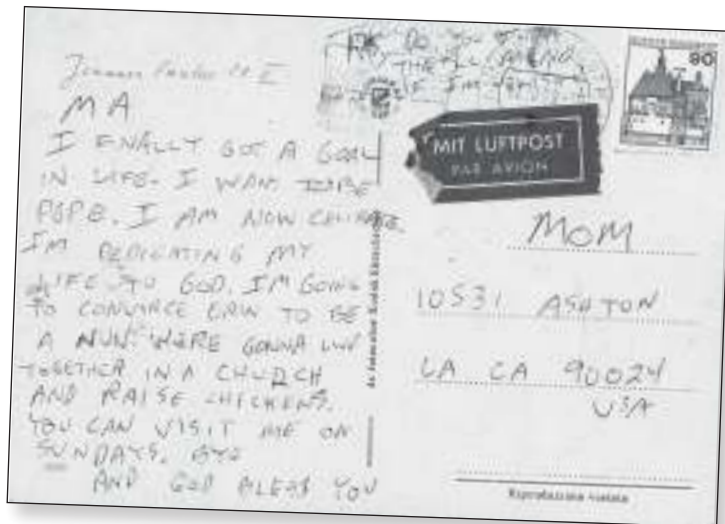 MA
I FINALLY GOT A GOAL
IN LIFE. I WANT TO BE
POPE. I AM NOW CELIBATE.
I'M DEDICATING MY
LIFE TO GOD. IM GOING
TO CONVINCE ERIN TO BE
A NUN. WERE GONNA LIVE
TOGETHER IN A CHURCH
AND RAISE CHICKENS.
YOU CAN VISIT ME ON
SUNDAYS. BYE
AND GOD BLESS YOU
DO YOU
THE ALL
I'M
80
MIT LUFTPOST
PAR AVION
MOM
10531 ASHTON
LA CA 90024
USA
Riproduzione vietata